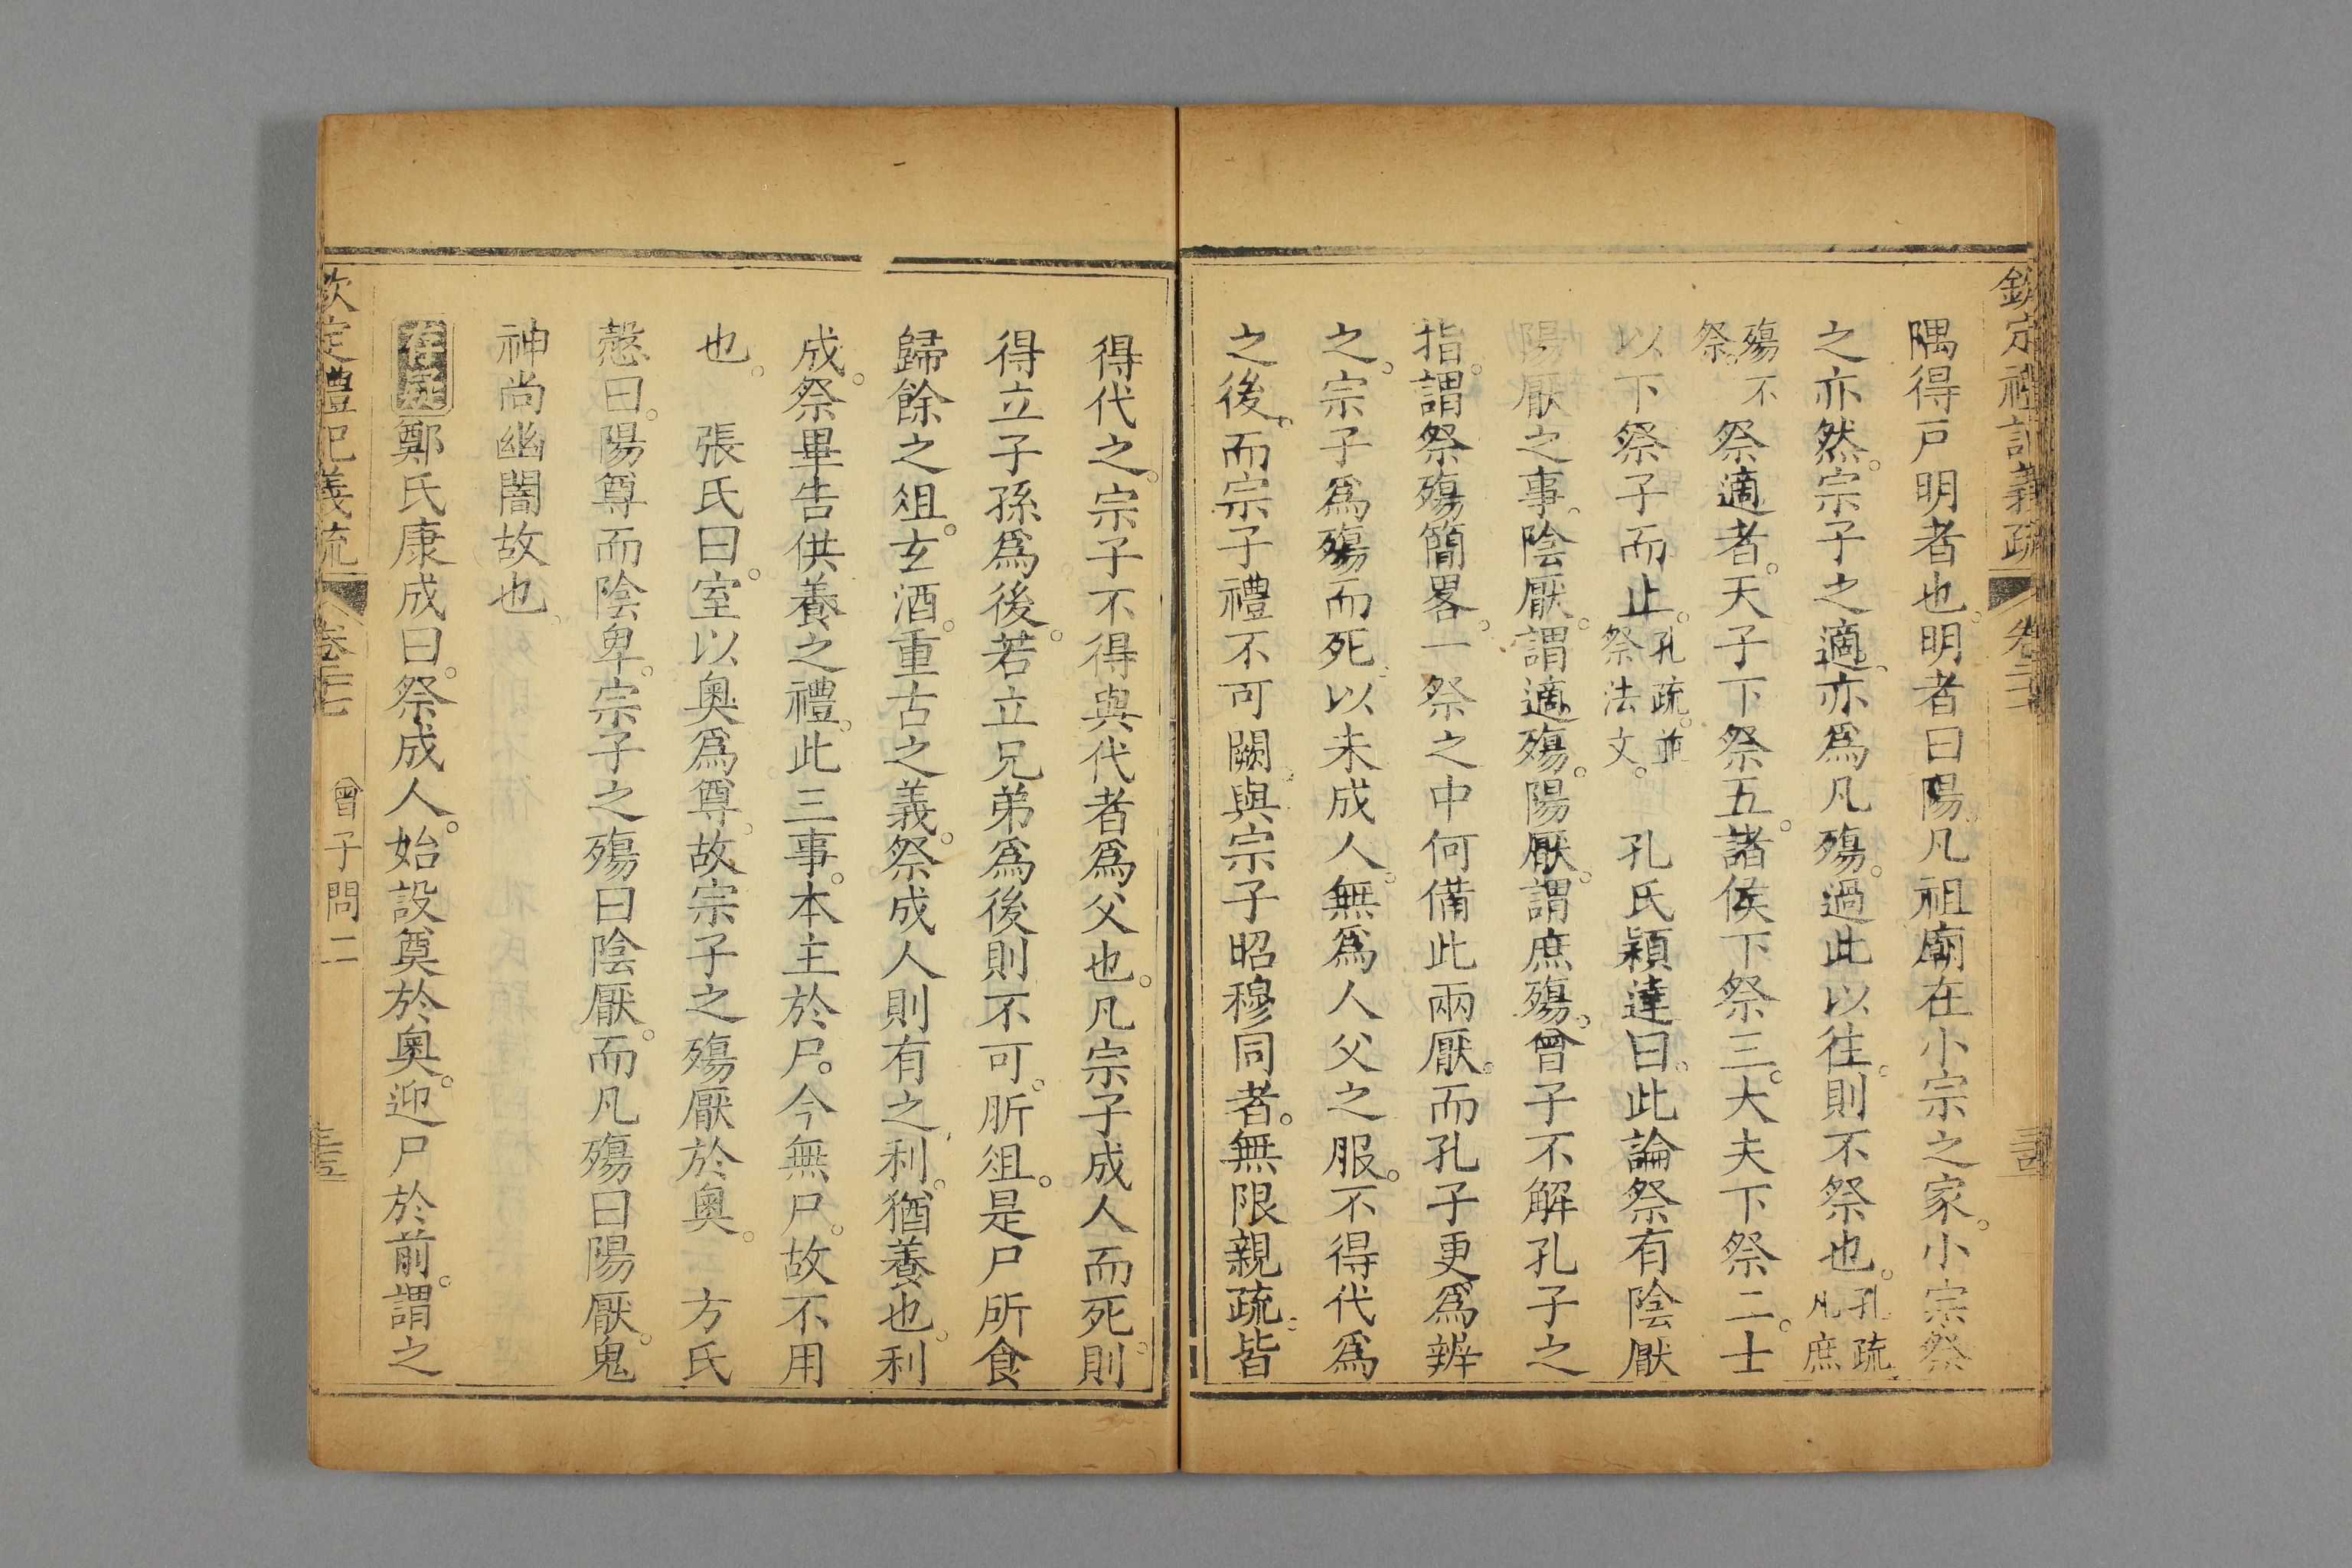 欽定禮記義疏 卷二十七 三古
隅得戸明者也。明者曰陽。凡祖廟在小宗之家。小宗祭
之亦然。宗子之適。亦爲凡殤。過此以往。則不祭也。孔疏。凡庶
殤不祭。祭適者。天子下祭五。諸侯下祭三。大夫下祭二。士
以下祭子而止。孔疏。並祭法文。 孔氏穎達曰。此論祭有陰厭
陽厭之事。陰厭。謂適殤。陽厭。謂庶殤。曾子不解孔子之
指。謂祭殤簡畧。一祭之中何備此兩厭。而孔子更爲辨
之。宗子爲殤而死。以未成人。無爲人父之服。不得代爲
之後。而宗子禮不可闕。與宗子昭穆同者。無限親疏。皆
得代之。宗子不得與代者爲父也。凡宗子成人而死。則
得立子孫爲後。若立兄弟爲後則不可。肵俎。是尸所食
歸餘之俎。玄酒。重古之義。祭成人則有之。利。猶養也。利
成。祭畢告供養之禮。此三事。本主於尸。今無尸。故不用
也。 張氏曰。室以奥爲尊。故宗子之殤厭於奥。 方氏
慤曰。陽尊而陰卑。宗子之殤曰陰厭。而凡殤曰陽厭。鬼
神尚幽闇故也。
鄭氏康成曰。祭成人。始設奠於奥。迎尸於前。謂之
欽定禮記義疏 卷二十七 曾子問二